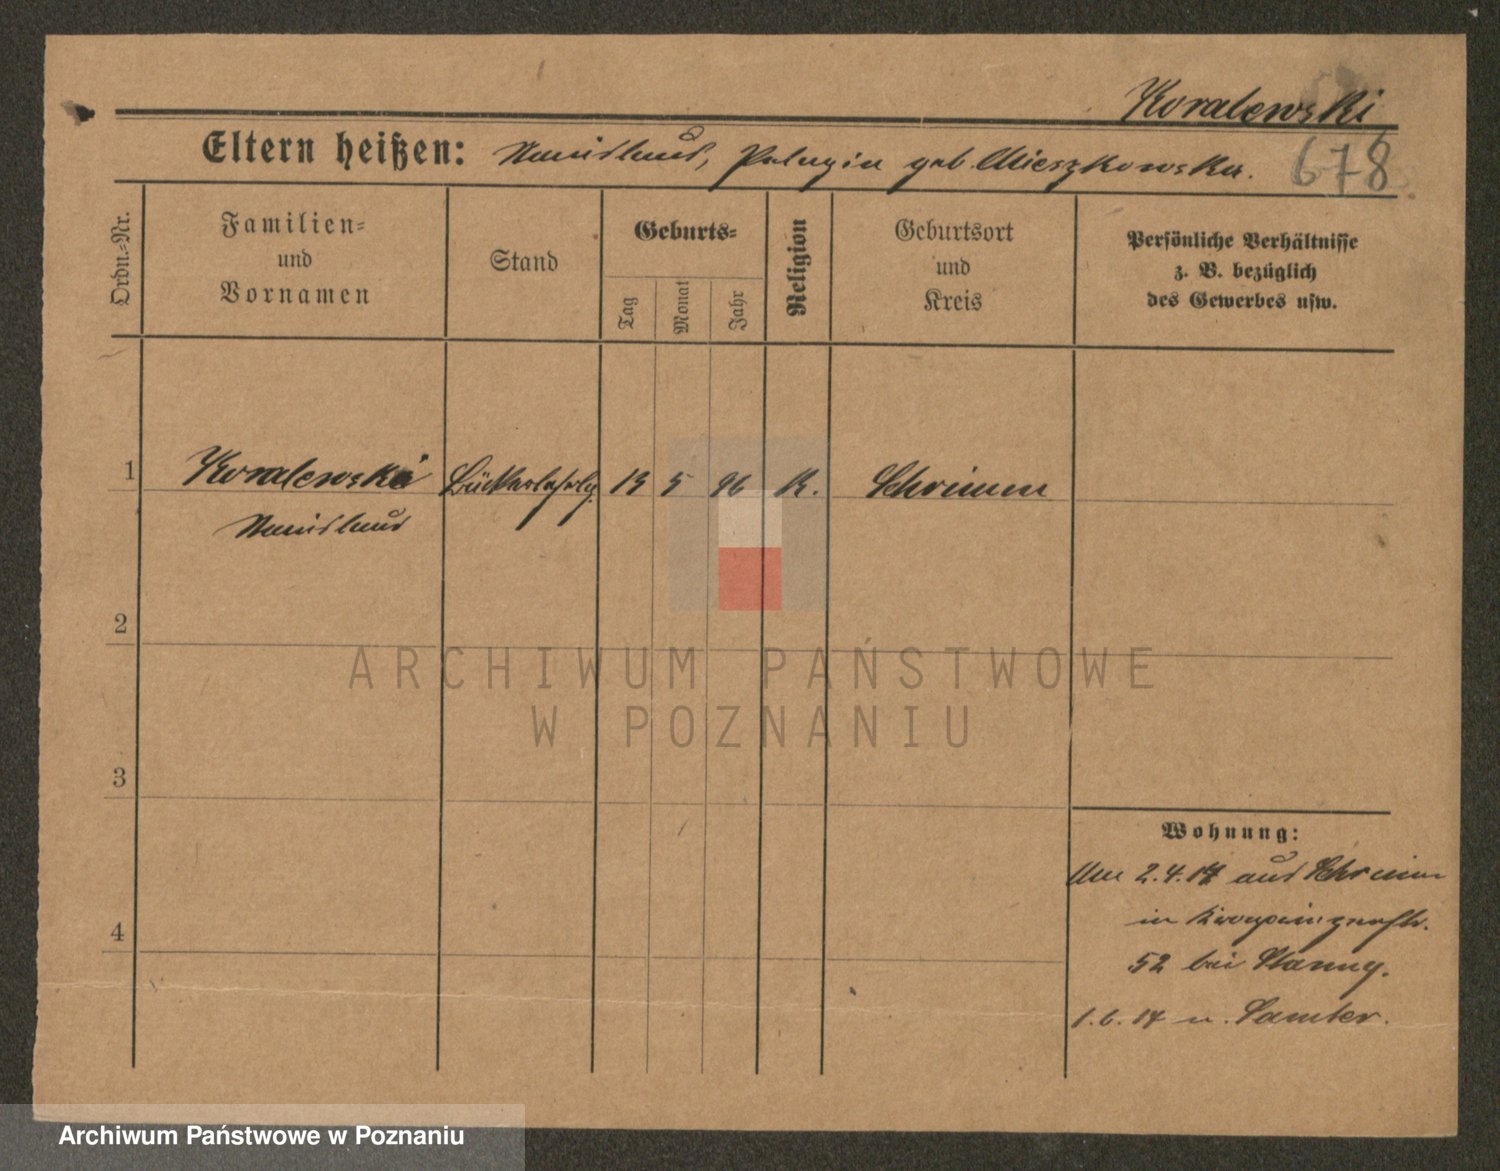 Koralewski
Eltern heißen: Stanislaus, Pelagia geb. Mieszkowska.
678
Ordn.-Nr.
Familien-
und
Vornamen
Stand
Geburts-
Tag
Monat
Jahr
Religion
Geburtsort
und
Kreis
Persönliche Verhältnisse
z. B. bezüglich
des Gewerbes usw.
1
Koralewski
Stanislaus
Bäckerlehrlg.
13
5
96
K.
Schrimm
2
3
4
Wohnung:
Am 2.4.14 aus Schrimm
in
52 bei
1.6.14 n. Samter.
ARCHIWUM PAŃSTWOWE
W POZNANIU
Archiwum Państwowe w Poznaniu